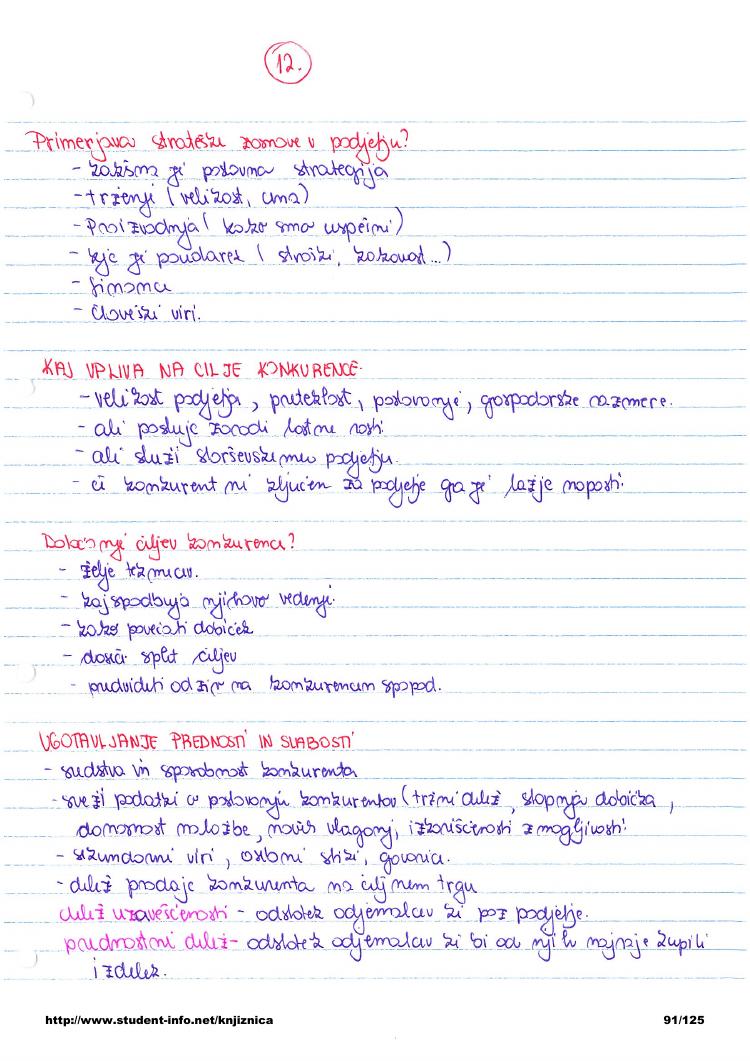 12.
Primerjava strateške zasnove v podjetju?
- kakšna je poslovna strategija
- trženje (velikost, cena)
- Proizvodnja (kako smo uspešni)
- kje je poudarek (stroški, kakovost...)
- finance
- človeški viri.
KAJ VPLIVA NA CILJE KONKURENCE.
- velikost podjetja, preteklost, poslovanje, gospodarske razmere.
- ali posluje zaradi lastne rasti.
- ali služi starševskemu podjetju.
- če konkurent ni ključen za podjetje ga je lažje napasti.
Določanje ciljev konkurence?
- želje tekmecev.
- kaj spodbuja njihovo vedenje.
- kako povečati dobiček
- doseči splet ciljev
- predvideti odziv na konkurenčen spopad.
UGOTAVLJANJE PREDNOSTI IN SLABOSTI
- sredstva in sposobnost konkurenta
- sveži podatki o poslovanju konkurentov (tržni delež, stopnja dobička,
donosnost naložbe, novih vlaganj, izkoriščenosti zmogljivosti.
- sekundarni viri, osebni stiki, govorice.
- delež prodaje konkurenta na ciljnem trgu
delež uzaveščenosti - odstotek odjemalcev ki poz podjetje.
prednostni delež - odstotek odjemalcev ki bi od njih najraje kupili
izdelek.
http://www.student-info.net/knjiznica
91/125